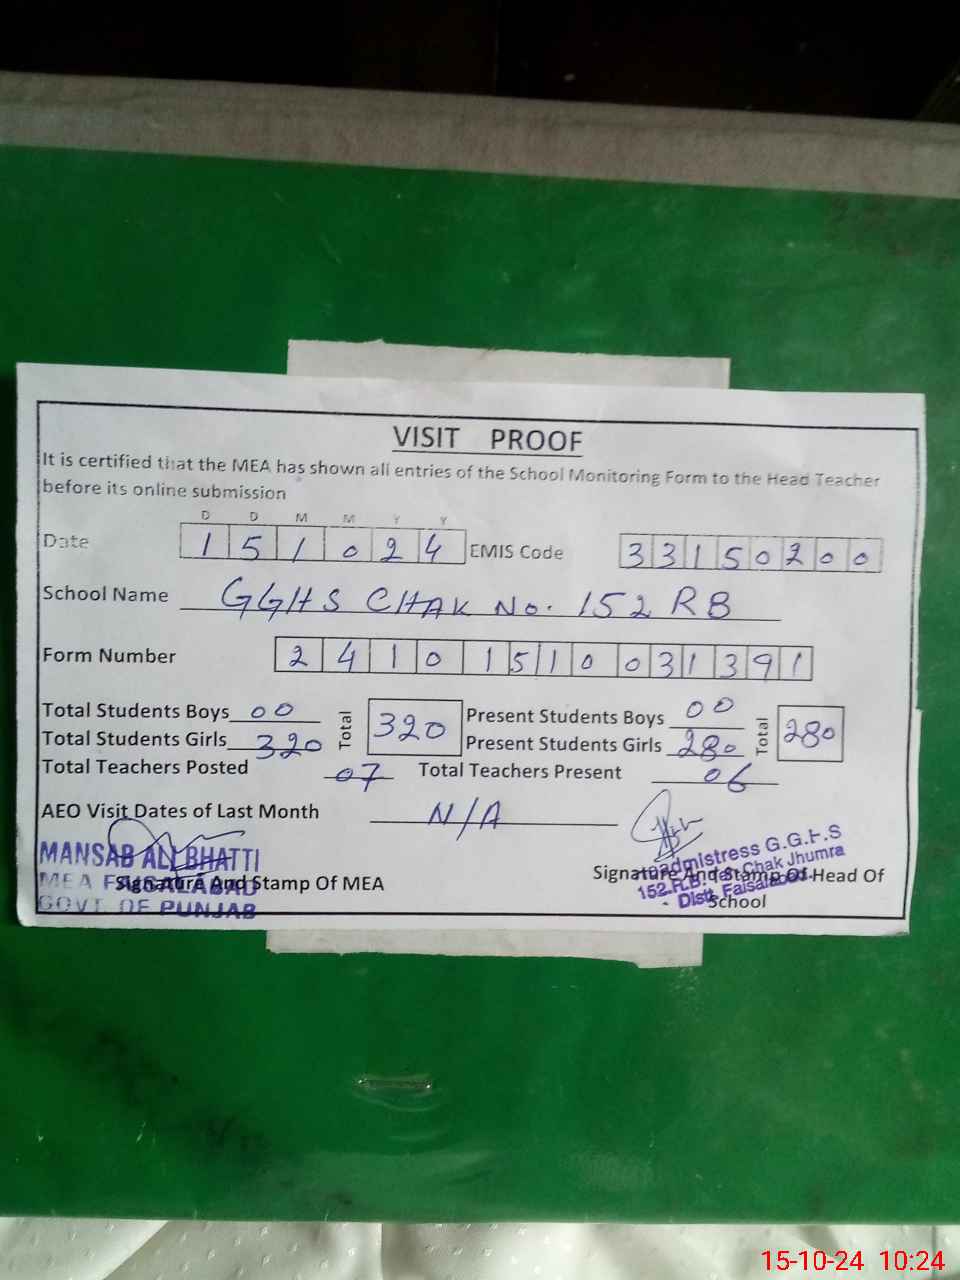 VISIT PROOF
It is certified that the MEA has shown all entries of the School Monitoring Form to the Head Teacher
before its online submission
D D M M Y Y
Date 1 5 1 0 2 4 EMIS Code 3 3 1 5 0 2 0 0
School Name GGHS CHAK No. 152 RB
Form Number 2 4 1 0 1 5 1 0 0 3 1 3 9 1
Total Students Boys 00 Total 320 Present Students Boys 00 Total 280
Total Students Girls 320 Present Students Girls 280
Total Teachers Posted 07 Total Teachers Present 06
AEO Visit Dates of Last Month N/A
MANSAB ALI BHATTI
MEA FAISALABAD
GOVT. OF PUNJAB
Signature And Stamp Of MEA
Headmistress G.G.H.S
152 R.B. Chak Jhumra
Distt. Faisalabad.
Signature And Stamp Of Head Of
School
15-10-24 10:24